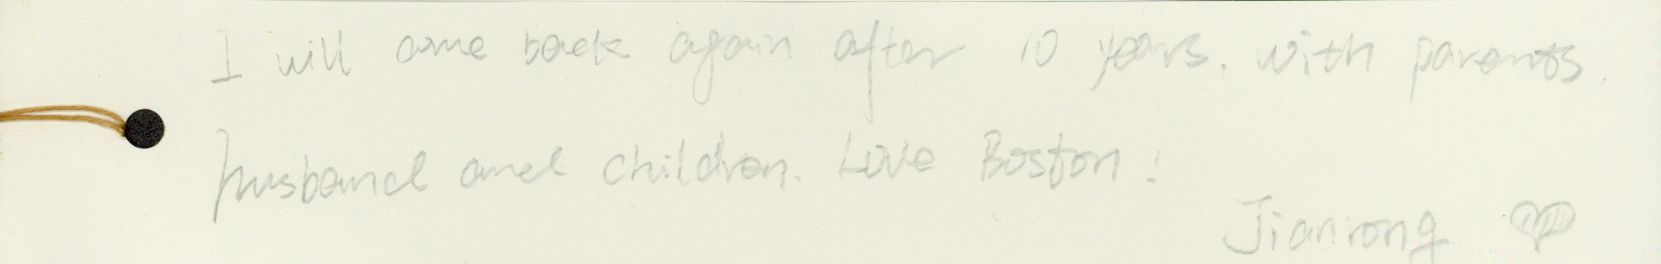 I will come back again after 10 years. with parents.
husband and children. Love Boston!
Jianrong ♡